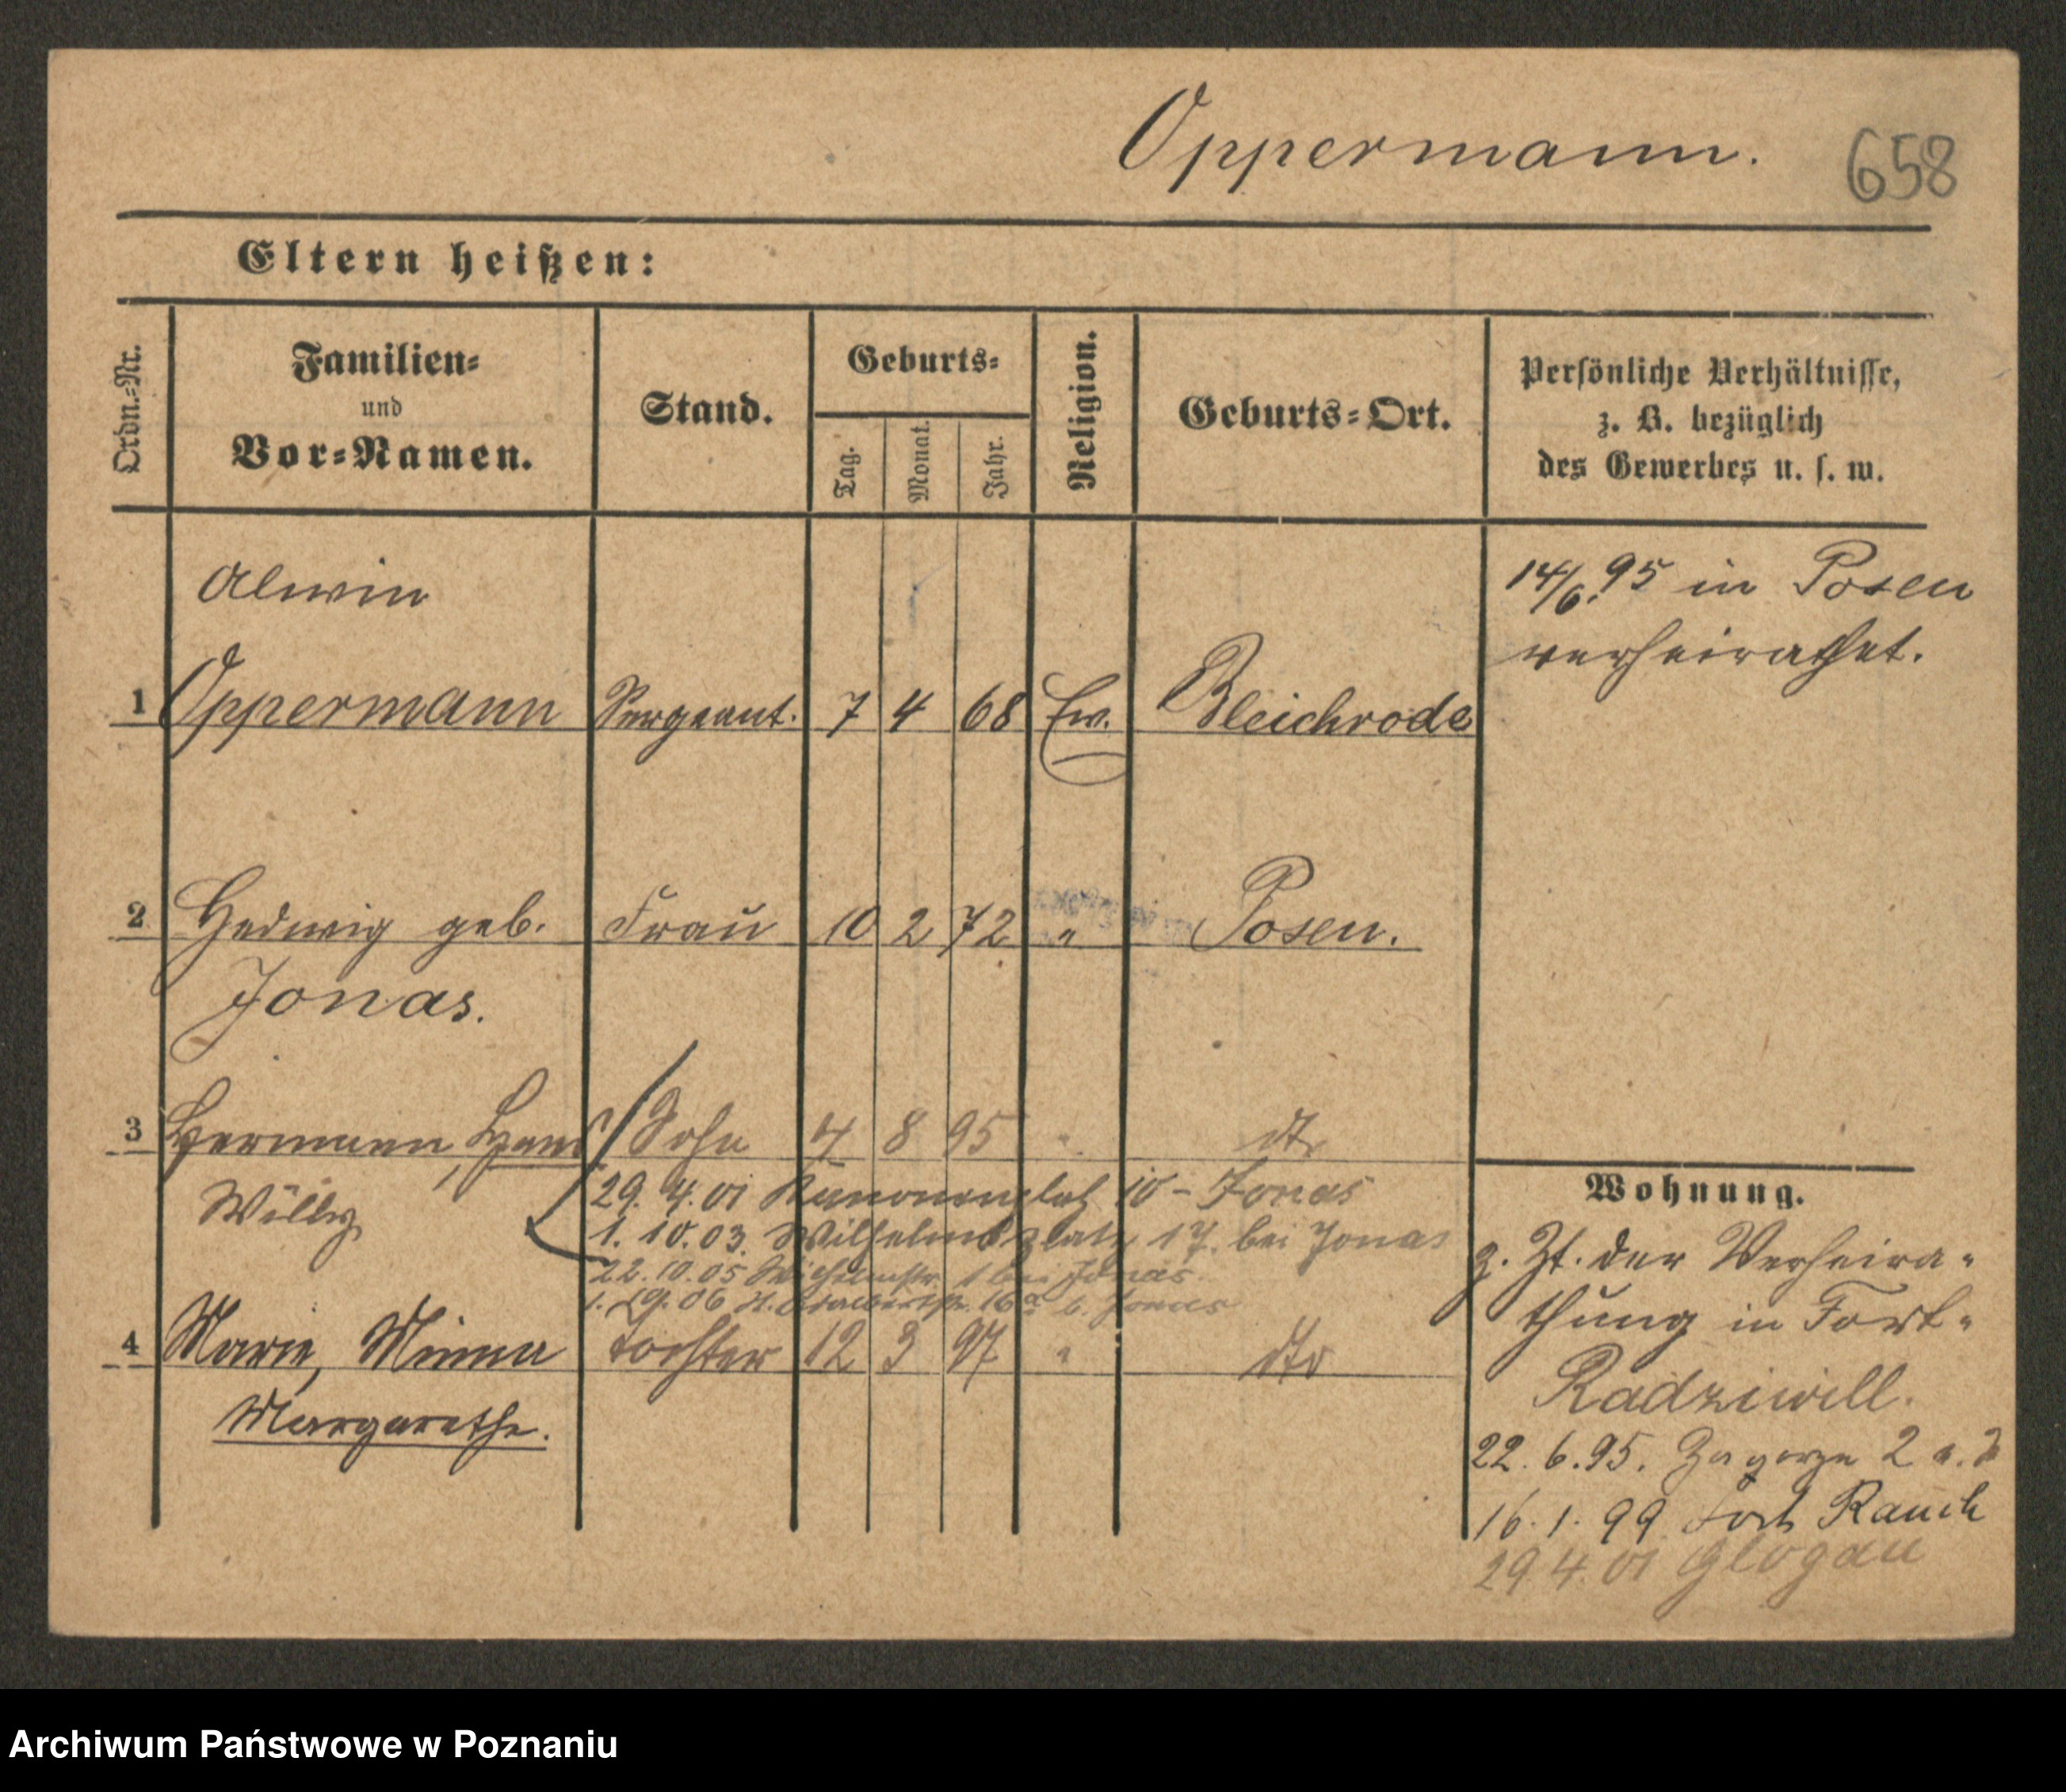 Oppermann.
658
Eltern heißen:
Ordn.-Nr.
Familien-
und
Vor-Namen.
Stand.
Geburts-
Tag.
Monat.
Jahr.
Religion.
Geburts-Ort.
Persönliche Verhältnisse,
z. B. bezüglich
des Gewerbes u. s. w.
Alwin
14/6. 95 in Posen
verheirathet.
1 Oppermann Sergeant. 7 4 68 Ev. Bleichrode
2 Hedwig geb. Frau 10 2 72 " Posen.
Jonas.
3 Hermann, Hans Sohn 4 8 95 " dto
Willy
29. 4. 01 Kanonenplatz 10 - Jonas
1. 10. 03. Wilhelmsplatz 17. bei Jonas
22. 10. 05 1 bei Jonas
06 16a b. Jonas
4 Marie, Minna Tochter 12 3 97 " dto
Margarethe.
Wohnung.
z. Zt. der Verheira-
thung in Fort-
Radziwill.
22. 6. 95. Zagorze 2 a.
16. 1. 99 Fort Rauch
29 4. 01 Glogau
Archiwum Państwowe w Poznaniu